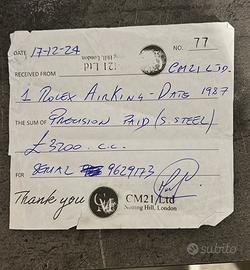 DATE 17-12-24 NO. 77
CM21 Ltd
Notting Hill, London
RECEIVED FROM CM21 LTD.
1 ROLEX AIRKING-DATE 1987
THE SUM OF PRECISION PAID (S.STEEL)
£3200.c.c.
FOR SERIAL 9629173
Thank you CM CM21 Ltd
Notting Hill, London
subito